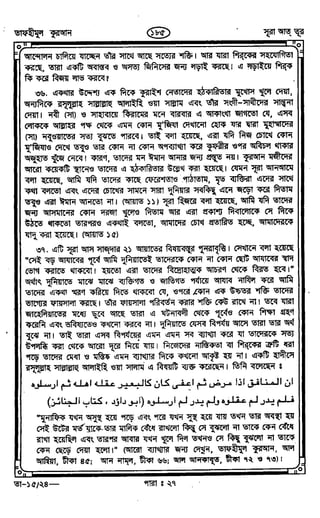 তাফহীমুল কুরআন
১৮৫
সূরা আত্ তূর
আন্দোলন চালিয়ে যাচ্ছেন তাঁর সাথে আছে সত্যের শক্তি। আর যারা শিরকের সহযোগিতা
করছে, তারা একটি অবাস্তব ও অসত্য জিনিসের জন্য লড়াই করছে। এ লড়াইয়ে শিরক
কি করে বিজয় লাভ করবে?
৩৬. একথার উদ্দেশ্য এক দিকে কুরাইশ নেতাদের হঠকারিতার মুখোস খুলে দেয়া,
অন্যদিকে রসূলুল্লাহ সাল্লাল্লাহু আলাইহি ওয়া সাল্লাম এবং তাঁর সংগী-সাথীদের সান্ত্বনা
দেয়া। নবী (সা) ও সাহাবায়ে কিরামের মনে বারবার এ আকাংখা জাগতো যে, এসব
লোককে আল্লাহর পক্ষ থেকে এমন কোন মু'জিযা দেখানো হোক যার দ্বারা মুহাম্মাদের
(সা) নবুওয়াতের সত্য বুঝতে পারবে। তাই বলা হয়েছে, এরা যদি নিজ চোখে কোন
মু'জিযাও দেখে তবুও তার কোন না কোন অপব্যাখ্যা করে কুফরীর ওপর অবিচল থাকার
অজুহাত খুঁজে নেবে। কারণ, তাদের মন ঈমান আনার জন্য প্রস্তুত নয়। কুরআন মজীদের
আরো কয়েকটি স্থানেও তাদের এ হঠকারিতার উল্লেখ করা হয়েছে। যেমন সূরা আন'আমে
বলা হয়েছে, আমি যদি তাদের কাছে ফেরেশতাও পাঠাতাম, মৃত ব্যক্তিরা এদের সাথে
কথা বলতো এবং এদের চোখের সামনে সারা দুনিয়ার সবকিছু এনে জড়ো করে দিতাম
তবুও এরা ঈমান আনতো না। (আয়াত ১১১) সূরা হিজরে বলা হয়েছে, আমি যদি তাদের
জন্য আসমানের কোন দরজা খুলেও দিতাম আর এরা প্রকাশ্য দিবালোকে সে দিকে
উঠতে থাকতো তারপরও একথাই বলতো, আমাদের চোখ প্রতারিত হচ্ছে, আমাদেরকে
যাদু করা হয়েছে। (আয়াত ১৫)
৩৭. এটি সূরা আস সাজদার ২১ আয়াতের বিষয়বস্তুর পুনরাবৃত্তি। সেখানে বলা হয়েছে
"সেই বড় আযাবের পূর্বে আমি দুনিয়াতেই তাদেরকে কোন না কোন ছোট আযাবের স্বাদ
ভোগ করাতে থাকবো। হয়তো এরা তাদের বিদ্রোহাত্মক আচরণ থেকে বিরত হবে।"
অর্থাৎ দুনিয়াতে মাঝে মাঝে ব্যক্তিগত ও জাতিগত পর্যায়ে আযাব নাযিল করে আমি
তাদের একথা স্মরণ করিয়ে দিতে থাকবো যে, ওপরে কোন এক উচ্চতর শক্তি তাদের
ভাগ্যের ফায়সালা করছে। তাঁর ফায়সালা পরিবর্তন করার শক্তি কেউ রাখে না। তবে যারা
জাহেলিয়াতের মধ্যে ডুবে আছে তারা এ ঘটনাবলী থেকে পূর্বেও কোন শিক্ষা গ্রহণ
করেনি এবং ভবিষ্যতেও কখনো করবে না। দুনিয়াতে যেসব বিপর্যয় আসে তারা তার অর্থ
বুঝে না। তাই তারা এসব বিপর্যয়ের এমন এমন সব ব্যাখ্যা করে যা তাদেরকে সত্য
উপলব্ধি করা থেকে আরো দূরে নিয়ে যায়। নিজেদের নাস্তিকতা বা শিরকের ত্রুটি ধরা
পড়ে তাদের মেধা ও মস্তিষ্ক এমন ব্যাখ্যার দিকে কখনো আকৃষ্ট হয় না। একটি হাদীসে
রসূলুল্লাহ সাল্লাল্লাহু আলাইহি ওয়া সাল্লাম এ বিষয়টি ব্যক্ত করেছেন। তিনি বলেছেন :
ان المنافق اذا مرض ثم اعفى كان كالبعير عقله اهله ثم ارسلوه
فلم يدر لم عقلوه ولم يدر لم ارسلوه (ابو داؤد ، كتاب الجنائز)
"মুনাফিক যখন অসুস্থ হয়ে পড়ে এবং পরে যখন সুস্থ হয়ে যায় তখন তার অবস্থা হয়
সেই উটের মত যাকে তার মালিক বেঁধে রাখলো কিন্তু সে বুঝলো না তাকে কেন বেঁধে
রাখা হয়েছিল এবং তারপর আবার যখন খুলে দিল তখনও সে কিছু বুঝলো না তাকে
কেন ছেড়ে দেয়া হলো।" (আরো ব্যাখ্যার জন্য দেখুন, তাফহীমুল কুরআন, আল
আম্বিয়া, টীকা ৪৫; আন নামল, টীকা ৬৬; আল আনকাবূত, টীকা ৭২ ও ৭৩)।
তা-১৫/২৪—
পারা : ২৭